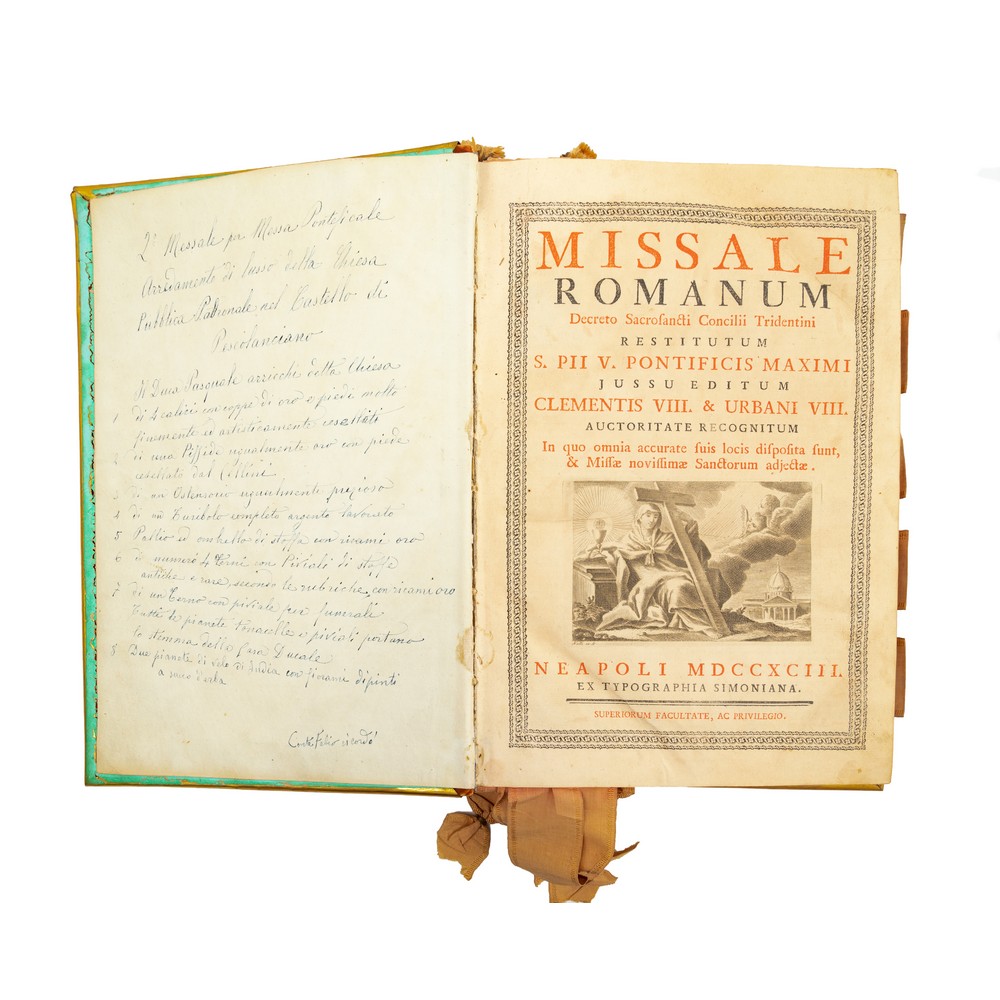 2° Messale per Messa Pontificale
Arredamento di lusso della Chiesa
Pubblica Padronale nel Castello di
Pescolanciano
Il Duca Pasquale arricchì detta Chiesa
1 di 4 calici con coppe di oro e piedi molto
finemente ed artisticamente cesellati
2 di una Pisside ugualmente oro con piede
cesellato dal Cellini
3 di un Ostensorio ugualmente prezioso
4 di un Turibolo completo argento lavorato
5 Pallio ed ombrello di stoffa con ricami oro
6 di numero 4 Terni con Piviali di stoffe
antiche e rare, secondo le rubriche, con ricami oro
7 di un Terno con piviale per funerali
Tutte le pianete tonacelle e piviali portano
lo stemma della Casa Ducale
8 Due pianete di velo d'India con fiorami dipinti
a succo d'erba
ricordò
MISSALE
ROMANUM
Decreto Sacrosancti Concilii Tridentini
RESTITUTUM
S. PII V. PONTIFICIS MAXIMI
JUSSU EDITUM
CLEMENTIS VIII. & URBANI VIII.
AUCTORITATE RECOGNITUM
In quo omnia accurate suis locis disposita sunt,
& Missæ novissimæ Sanctorum adjectæ.
NEAPOLI MDCCXCIII.
EX TYPOGRAPHIA SIMONIANA.
SUPERIORUM FACULTATE, AC PRIVILEGIO.